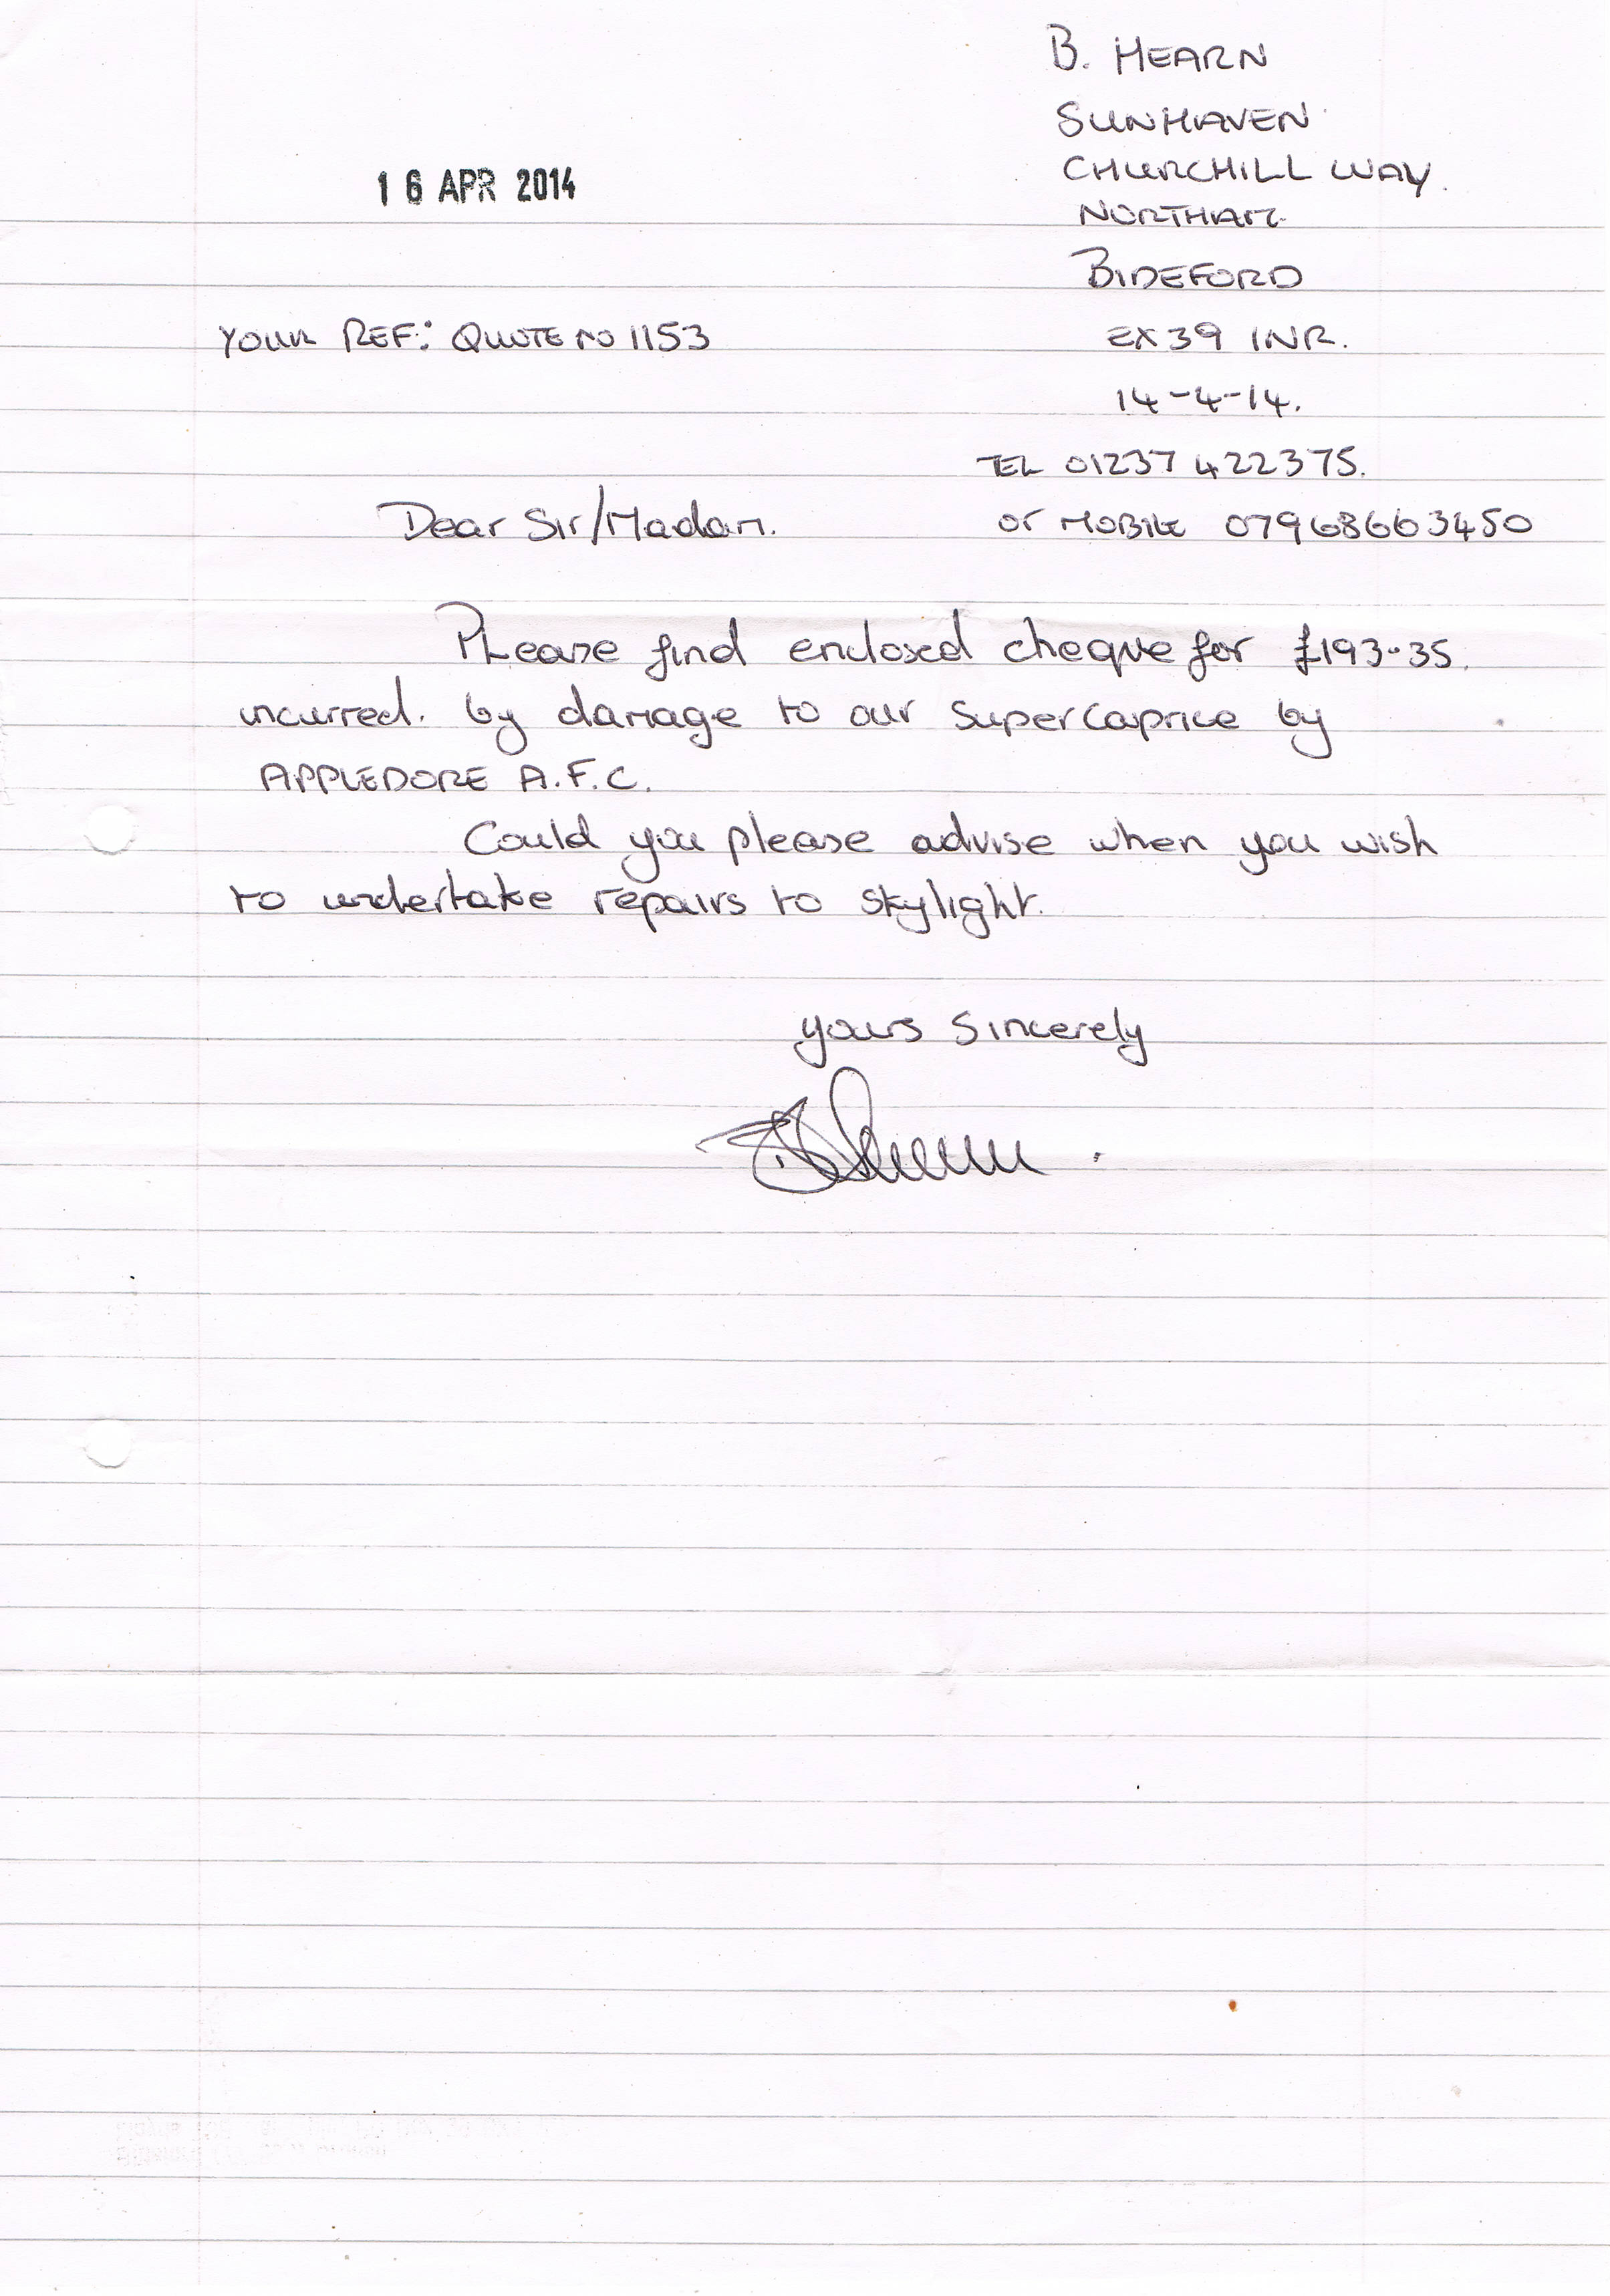 B. HEARN
SUNHAVEN
CHURCHILL WAY.
16 APR 2014
NORTHAM.
BIDEFORD
YOUR REF: QUOTE NO 1153
EX39 1NR.
14-4-14.
TEL 01237 422375.
Dear Sir/Madam.
or MOBILE 07968663450
Please find enclosed cheque for £193-35.
incurred. by damage to our Supercaprice by
APPLEDORE A.F.C.
Could you please advise when you wish
to undertake repairs to skylight.
yours Sincerely